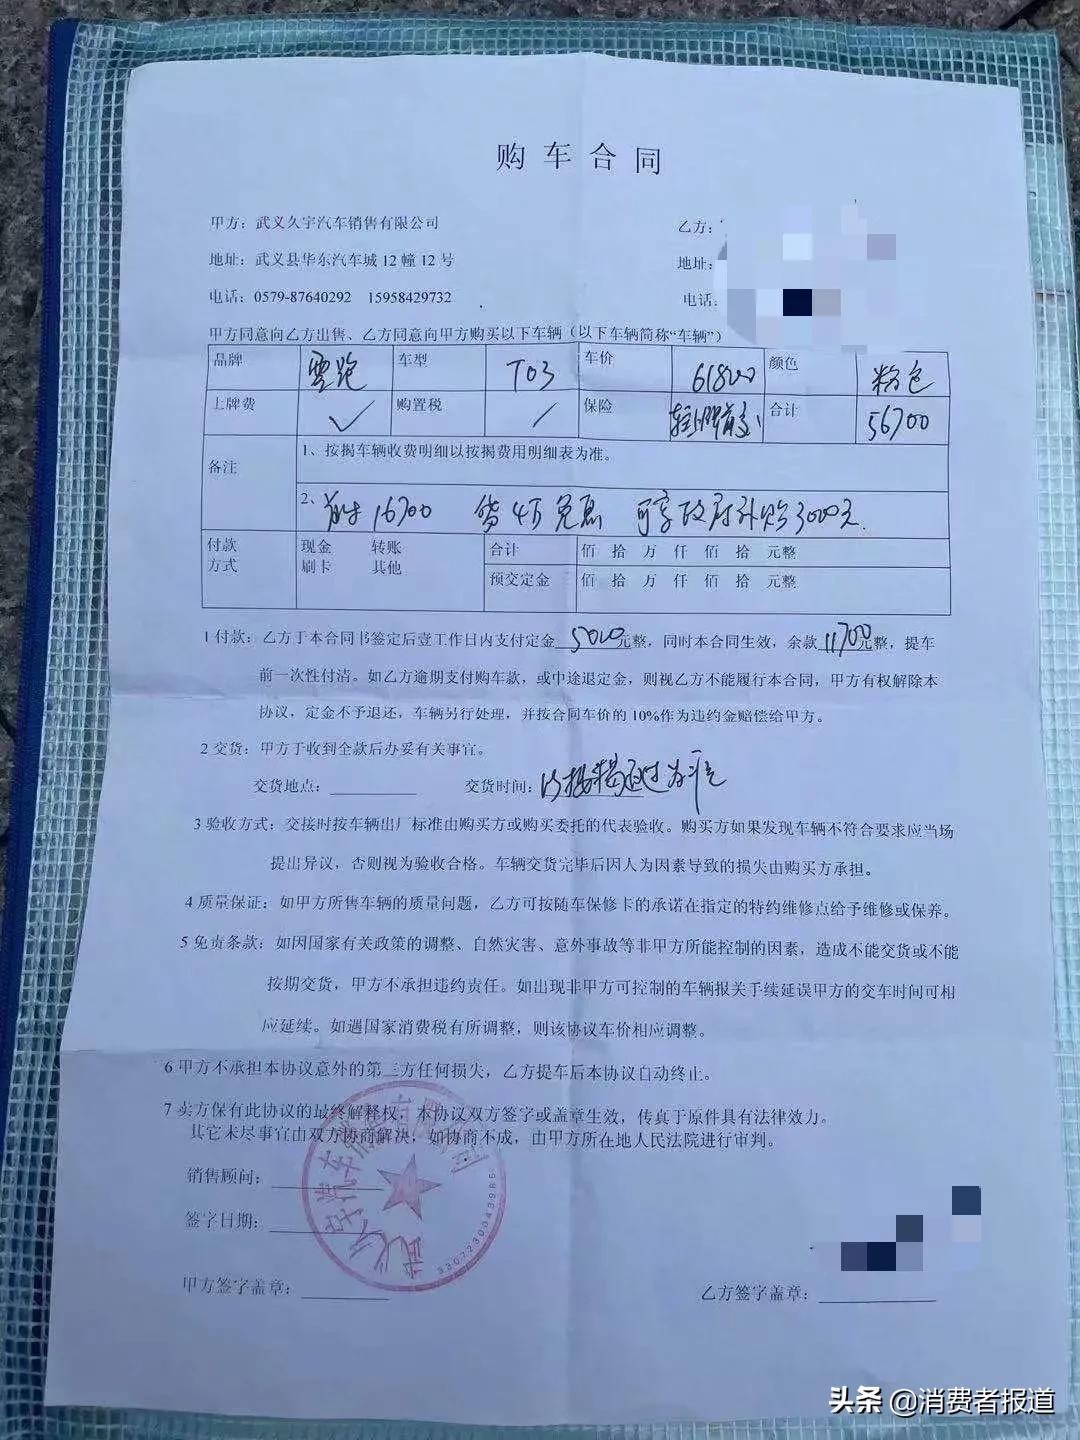 购车合同
甲方：武义久宇汽车销售有限公司 乙方：
地址：武义县华东汽车城12幢12号 地址：
电话：0579-87640292 15958429732 电话
甲方同意向乙方出售、乙方同意向甲方购买以下车辆（以下车辆简称“车辆”）
品牌 零跑 车型 T03 车价 61800 颜色 粉色
上牌费 ✓ 购置税 / 保险 合计 56700
备注 1、按揭车辆收费明细以按揭费用明细表为准。
2、首付16700 贷4万免息 可享政府补贴3000元.
付款方式 现金 转账 合计 佰 拾 万 仟 佰 拾 元整
刷卡 其他 预交定金 佰 拾 万 仟 佰 拾 元整
1付款：乙方于本合同书签定后壹工作日内支付定金5000元整，同时本合同生效，余款11700元整，提车
前一次性付清。如乙方逾期支付购车款，或中途退定金，则视乙方不能履行本合同，甲方有权解除本
协议，定金不予退还，车辆另行处理，并按合同车价的10%作为违约金赔偿给甲方。
2交货：甲方于收到全款后办妥有关事宜。
交货地点：________ 交货时间：以按揭通过为准
3验收方式：交接时按车辆出厂标准由购买方或购买委托的代表验收。购买方如果发现车辆不符合要求应当场
提出异议，否则视为验收合格。车辆交货完毕后因人为因素导致的损失由购买方承担。
4质量保证：如甲方所售车辆的质量问题，乙方可按随车保修卡的承诺在指定的特约维修点给予维修或保养。
5免责条款：如因国家有关政策的调整、自然灾害、意外事故等非甲方所能控制的因素，造成不能交货或不能
按期交货，甲方不承担违约责任。如出现非甲方可控制的车辆报关手续延误甲方的交车时间可相
应延续。如遇国家消费税有所调整，则该协议车价相应调整。
6甲方不承担本协议意外的第三方任何损失，乙方提车后本协议自动终止。
7卖方保有此协议的最终解释权，本协议双方签字或盖章生效，传真于原件具有法律效力。
其它未尽事宜由双方协商解决，如协商不成，由甲方所在地人民法院进行审判。
销售顾问：
签字日期：
武义久宇汽车销售有限公司
3307230043985
甲方签字盖章： 乙方签字盖章：
头条 @消费者报道